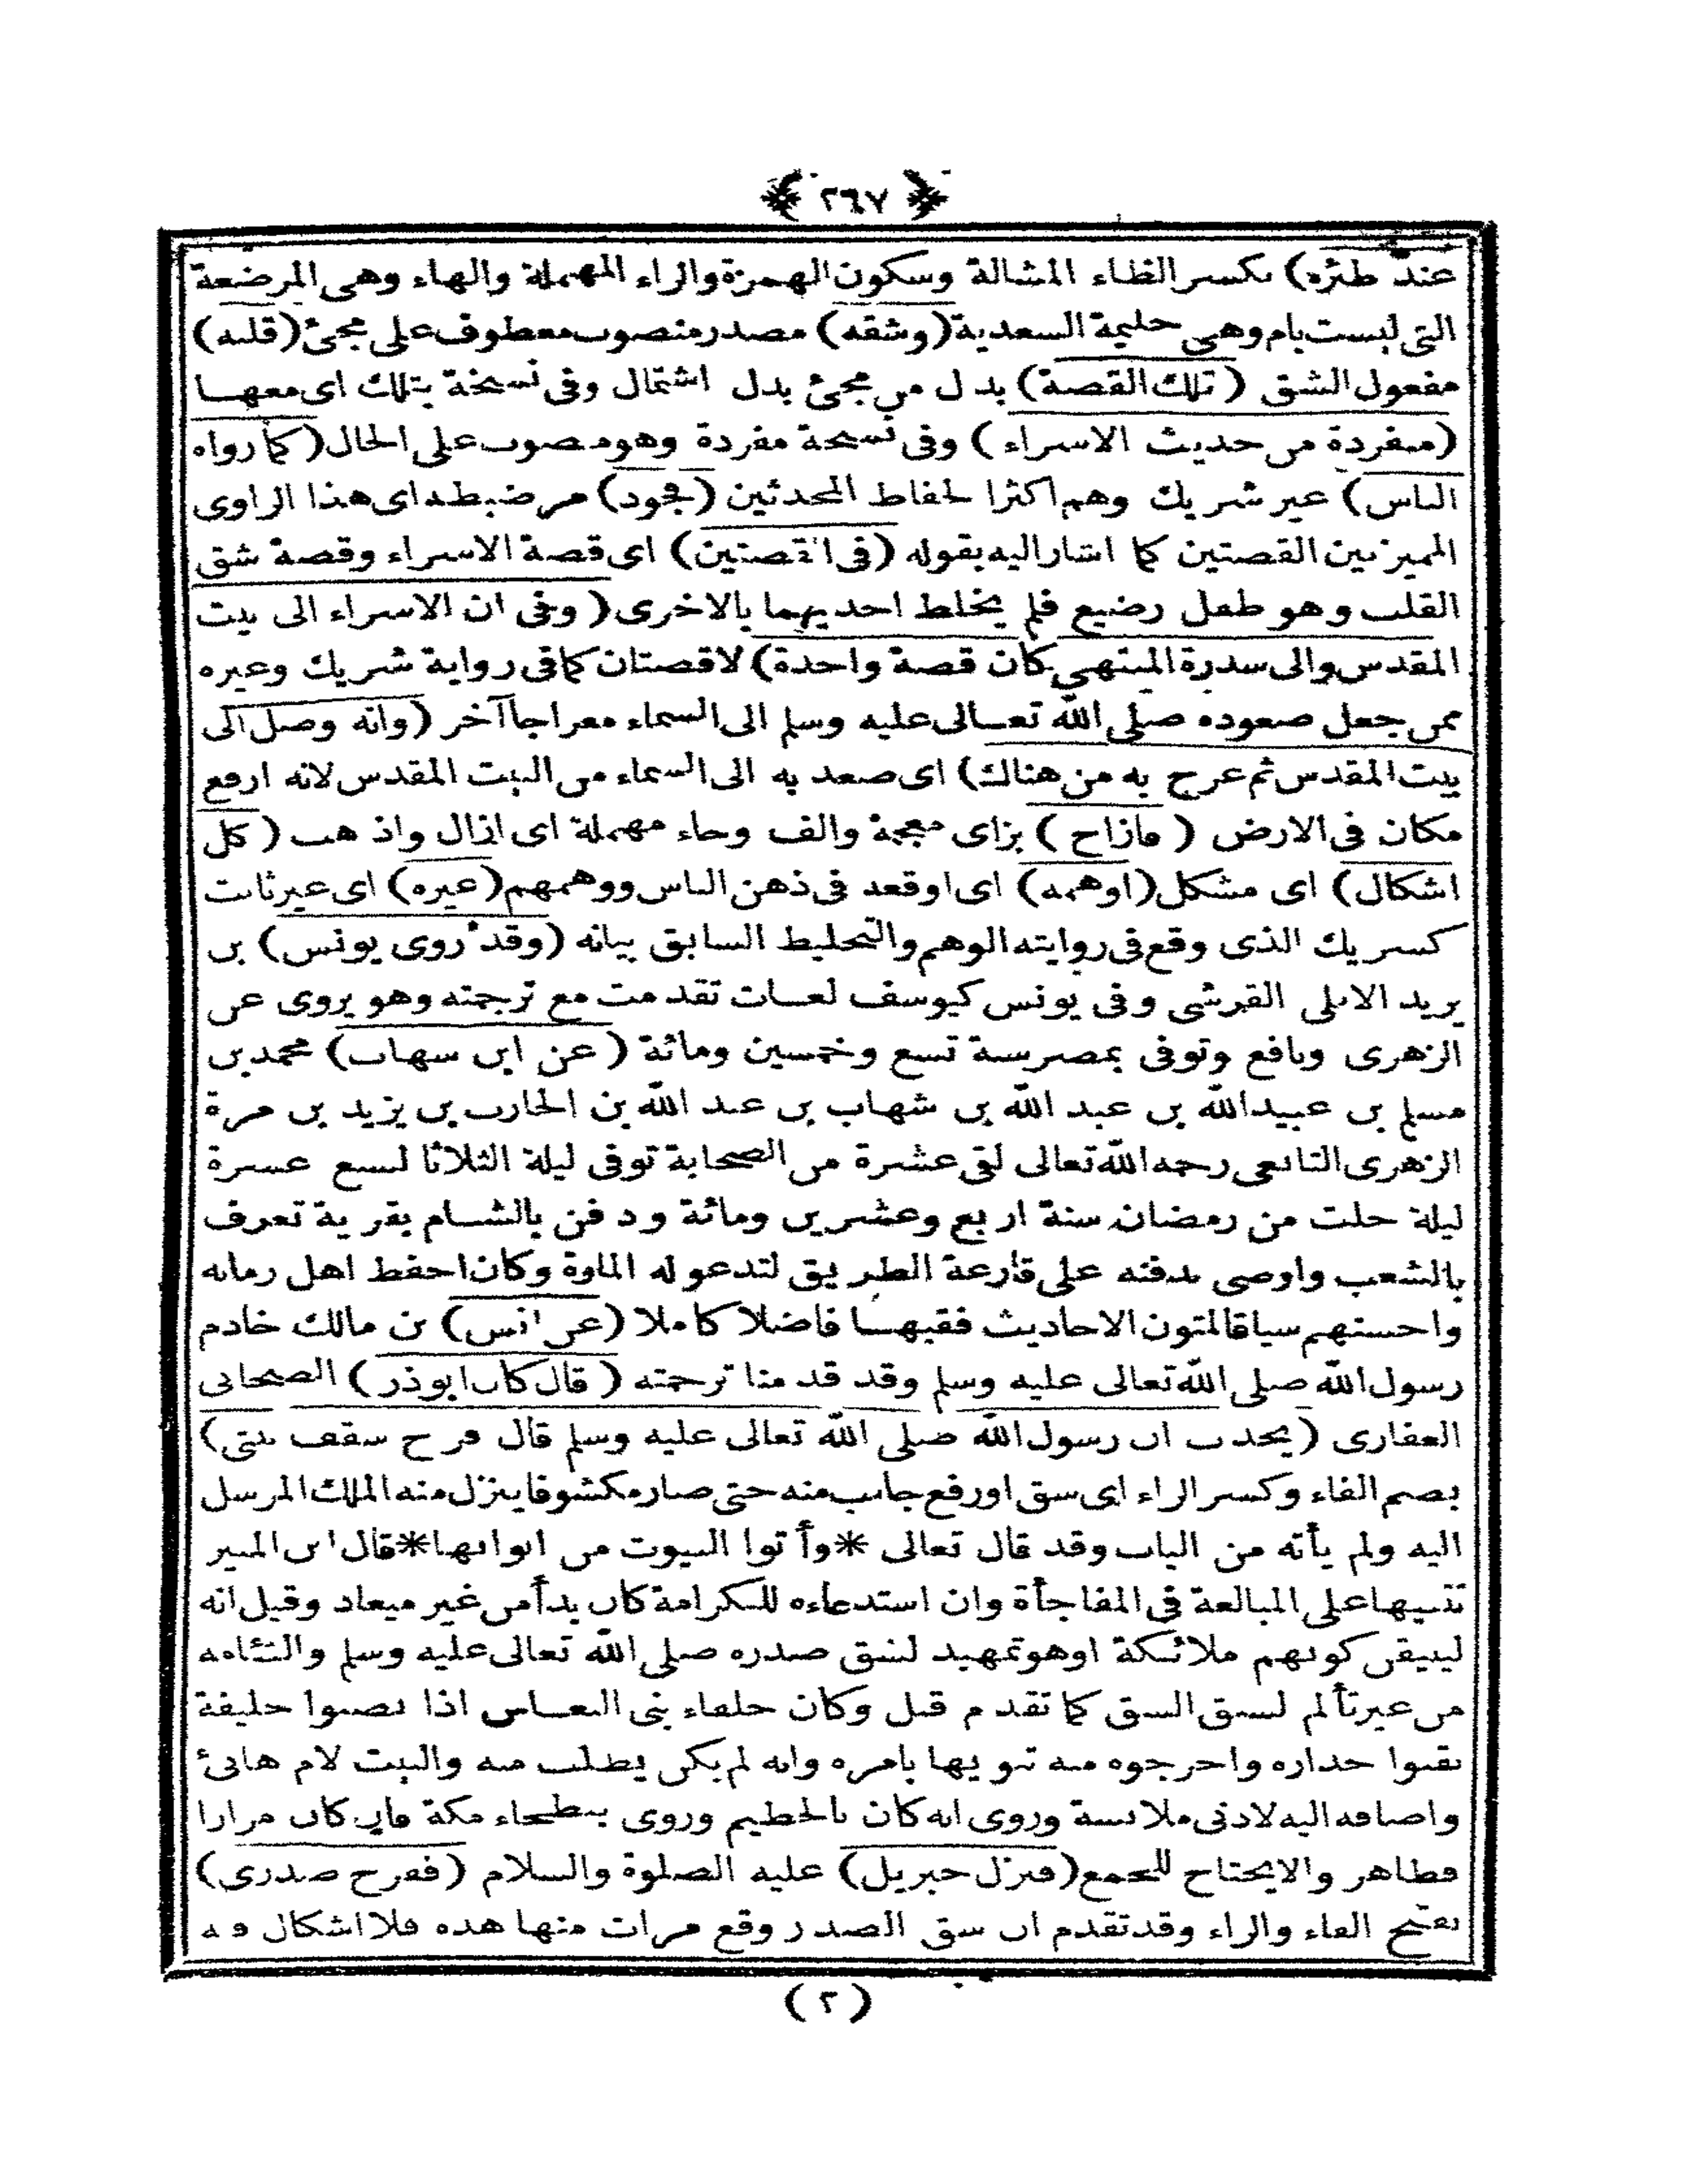 ﴿ ٢٦٧ ﴾
عند ظئره) بكسر الظاء المشالة وسكون الهمزة والراء المهملة والهاء وهى المرضعة
التى ليست بام وهى حليمة السعدية (وشقه) مصدر منصوب معطوف على مجئ (قلبه)
مفعول الشق (تلك القصة) بدل من مجئ بدل اشتمال وفى نسخة بتلك اى معها
(منفردة من حديث الاسراء) وفى نسخة مفردة وهو منصوب على الحال (كما رواه
الناس) غير شريك وهم اكثر الحفاظ المحدثين (فجود) من ضبطه اى هذا الراوى
المميز بين القصتين كما اشار اليه بقوله (فى القصتين) اى قصة الاسراء وقصة شق
القلب وهو طفل رضيع فلم يخلط احديهما بالاخرى (وفى ان الاسراء الى بيت
المقدس والى سدرة المنتهى كان قصة واحدة) لا قصتان كما فى رواية شريك وغيره
ممن جعل صعوده صلى الله تعالى عليه وسلم الى السماء معراجا آخر (وانه وصل الى
بيت المقدس ثم عرج به من هناك) اى صعد به الى السماء من البيت المقدس لانه ارفع
مكان فى الارض (فازاح) بزاى معجمة والف وحاء مهملة اى ازال واذهب (كل
اشكال) اى مشكل (اوهمه) اى اوقعه فى ذهن الناس ووهمهم (غيره) اى غير ثابت
كشريك الذى وقع فى روايته الوهم والتخليط السابق بيانه (وقد روى يونس) بن
يزيد الايلى القرشى وفى يونس كيوسف لغات تقدمت مع ترجمته وهو يروى عن
الزهرى ونافع وتوفى بمصر سنة تسع وخمسين ومائة (عن ابن شهاب) محمد بن
مسلم بن عبيدالله بن عبد الله بن شهاب بن عبد الله بن الحارث بن يزيد بن مرة
الزهرى التابعى رحمه الله تعالى لقى عشرة من الصحابة توفى ليلة الثلاثا لسبع عشرة
ليلة خلت من رمضان سنة اربع وعشرين ومائة ودفن بالشام بقرية تعرف
بالشعب واوصى بدفنه على قارعة الطريق لتدعو له المارة وكان احفظ اهل زمانه
واحسنهم سياقا لمتون الاحاديث فقيها فاضلا كاملا (عن انس) بن مالك خادم
رسول الله صلى الله تعالى عليه وسلم وقد قدمنا ترجمته (قال كان ابوذر) الصحابى
الغفارى (يحدث ان رسول الله صلى الله تعالى عليه وسلم قال فرج سقف بيتى)
بضم الفاء وكسر الراء اى شق او رفع جانب منه حتى صار مكشوفا ينزل منه الملك المرسل
اليه ولم يأته من الباب وقد قال تعالى *وأتوا البيوت من ابوابها* قال ابن المنير
تنبيها على المبالغة فى المفاجأة وان استدعاءه للكرامة كان بدأ من غير ميعاد وقيل انه
ليتيقن كونهم ملائكة او هو تمهيد لشق صدره صلى الله تعالى عليه وسلم والتئامه
من غير تألم لسبق الشق كما تقدم قبل وكان خلفاء بنى العباس اذا نصبوا خليفة
نقبوا جداره واخرجوه منه تنويها بامره وانه لم يكن يطلب منه والبيت لام هانئ
واضافه اليه لادنى ملابسة وروى انه كان بالحطيم وروى ببطحاء مكة فان كان مرارا
فظاهر والا يحتاج للجمع (فنزل جبريل) عليه الصلوة والسلام (ففرج صدرى)
بفتح الفاء والراء وقد تقدم ان شق الصدر وقع مرات منها هذه فلا اشكال فيه
(٢)